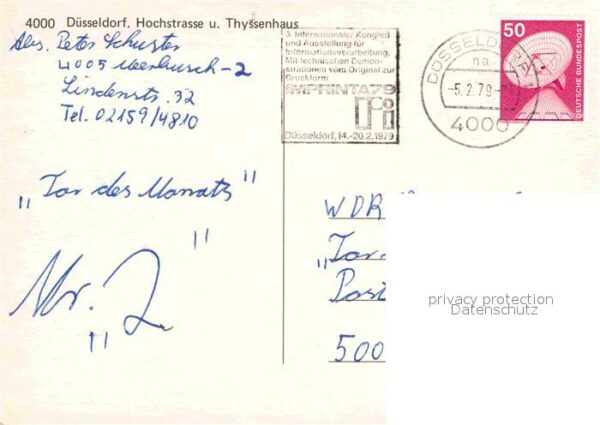 4000 Düsseldorf. Hochstrasse u. Thyssenhaus
Abs. Peter Schuster
4005 Meerbusch-2
Lindenstr. 32
Tel. 02159/4810
3. Internationaler Kongreß
und Ausstellung für
Informationsverarbeitung.
Mit technischen Demon-
strationen vom Original zur
Druckform
IMPRINTA79
Düsseldorf, 14.-20.2.1979
DÜSSELDORF
na
-5.2.79-
4000
50
DEUTSCHE BUNDESPOST
"Tor des Monats"
"Nr. 2"
WDR
"Tor
Post
500
privacy protection
Datenschutz